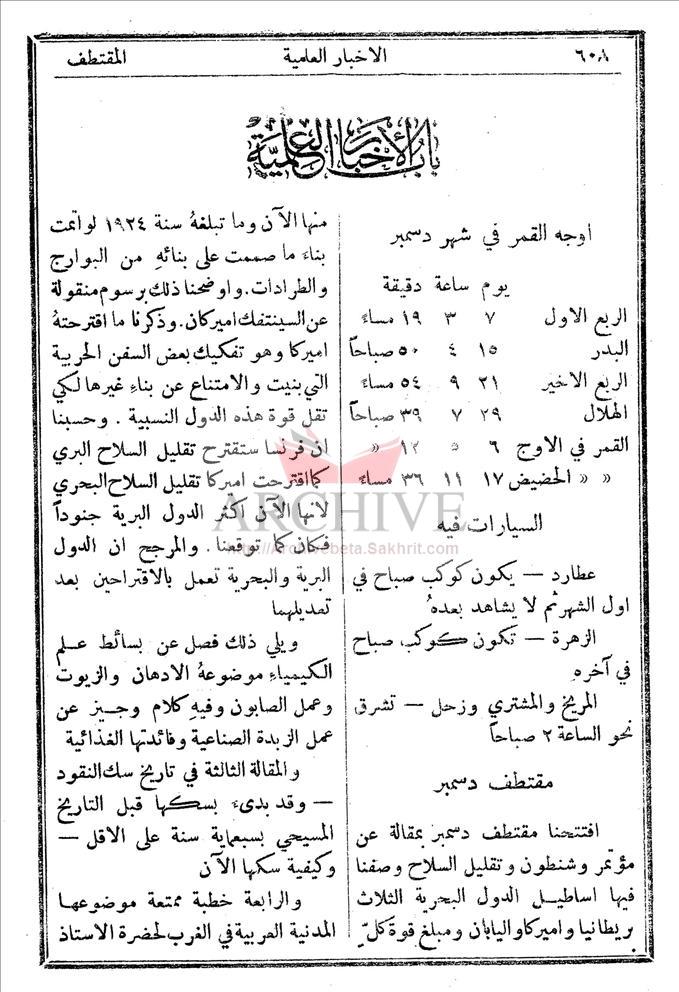 ٦٠٨
الاخبار العلمية
المقتطف
باب الأخبار العلمية
اوجه القمر في شهر دسمبر
يوم ساعة دقيقة
الربع الاول ٧ ٣ ١٩ مساء
البدر ١٥ ٤ ٥٠ صباحاً
الربع الاخير ٢١ ٩ ٥٤ مساء
الهلال ٢٩ ٧ ٣٩ صباحاً
القمر في الاوج ٦ ٥ ١٢ »
» » الحضيض ١٧ ١١ ٣٦ مساء
السيارات فيه
عطارد — يكون كوكب صباح في
اول الشهر ثم لا يشاهد بعدهُ
الزهرة — تكون كوكب صباح
في آخره
المريخ والمشتري وزحل — تشرق
نحو الساعة ٢ صباحاً
مقتطف دسمبر
افتتحنا مقتطف دسمبر بمقالة عن
مؤتمر وشنطون وتقليل السلاح وصفنا
فيها اساطيل الدول البحرية الثلاث
بريطانيا واميركا واليابان ومبلغ قوة كلّ
منها الآن وما تبلغهُ سنة ١٩٢٤ لو اتمت
بناء ما صممت على بنائهِ من البوارج
والطرادات. واوضحنا ذلك برسوم منقولة
عن السينتفك اميركان. وذكرنا ما اقترحتهُ
اميركا وهو تفكيك بعض السفن الحربية
التي بنيت والامتناع عن بناء غيرها لكي
تقل قوة هذه الدول النسبية. وحسبنا
ان فرنسا ستقترح تقليل السلاح البري
كما اقترحت اميركا تقليل السلاح البحري
لانها الآن اكثر الدول البرية جنوداً
فكان كما توقعنا. والمرجح ان الدول
البرية والبحرية تعمل بالاقتراحين بعد
تعديلهما
ويلي ذلك فصل عن بسائط علم
الكيمياء موضوعهُ الادهان والزيوت
وعمل الصابون وفيهِ كلام وجيز عن
عمل الزبدة الصناعية وفائدتها الغذائية
والمقالة الثالثة في تاريخ سك النقود
— وقد بدىء بسكها قبل التاريخ
المسيحي بسبعماية سنة على الاقل —
وكيفية سكها الآن
والرابعة خطبة ممتعة موضوعها
المدنية العربية في الغرب لحضرة الاستاذ
ARCHIVE
http://Archivebeta.Sakhrit.com